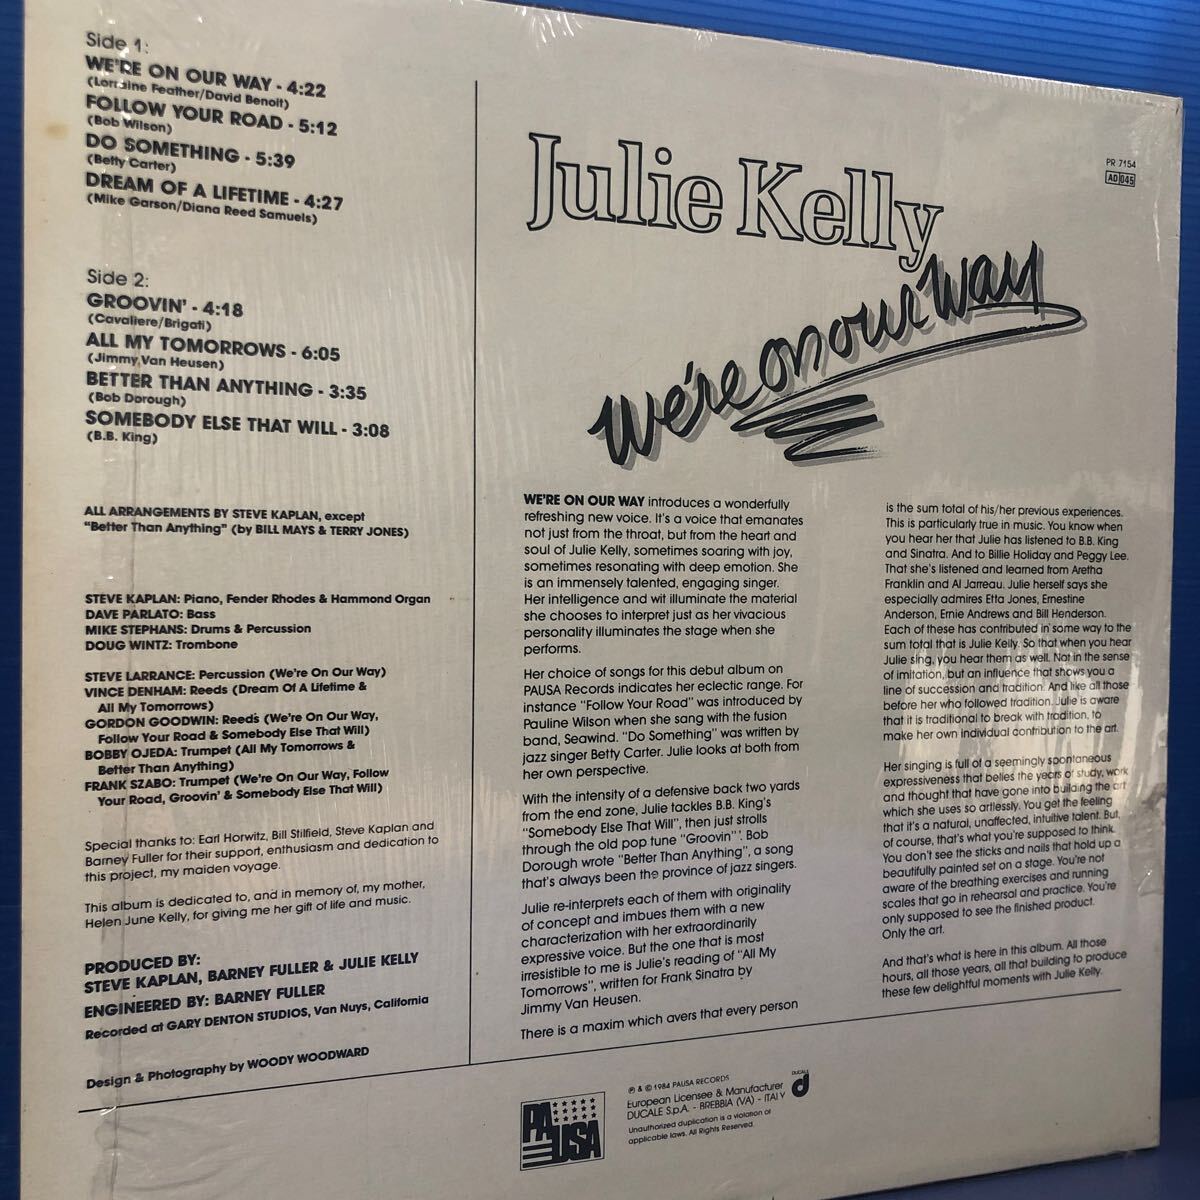 Side 1:
WE'RE ON OUR WAY - 4:22
(Lorraine Feather/David Benoit)
FOLLOW YOUR ROAD - 5:12
(Bob Wilson)
DO SOMETHING - 5:39
(Betty Carter)
DREAM OF A LIFETIME - 4:27
(Mike Garson/Diana Reed Samuels)
Side 2:
GROOVIN' - 4:18
(Cavaliere/Brigati)
ALL MY TOMORROWS - 6:05
(Jimmy Van Heusen)
BETTER THAN ANYTHING - 3:35
(Bob Dorough)
SOMEBODY ELSE THAT WILL - 3:08
(B.B. King)
ALL ARRANGEMENTS BY STEVE KAPLAN, except
"Better Than Anything" (by BILL MAYS & TERRY JONES)
STEVE KAPLAN: Piano, Fender Rhodes & Hammond Organ
DAVE PARLATO: Bass
MIKE STEPHANS: Drums & Percussion
DOUG WINTZ: Trombone
STEVE LARRANCE: Percussion (We're On Our Way)
VINCE DENHAM: Reeds (Dream Of A Lifetime &
All My Tomorrows)
GORDON GOODWIN: Reeds (We're On Our Way,
Follow Your Road & Somebody Else That Will)
BOBBY OJEDA: Trumpet (All My Tomorrows &
Better Than Anything)
FRANK SZABO: Trumpet (We're On Our Way, Follow
Your Road, Groovin' & Somebody Else That Will)
Special thanks to: Earl Horwitz, Bill Stilfield, Steve Kaplan and
Barney Fuller for their support, enthusiasm and dedication to
this project, my maiden voyage.
This album is dedicated to, and in memory of, my mother,
Helen June Kelly, for giving me her gift of life and music.
PRODUCED BY:
STEVE KAPLAN, BARNEY FULLER & JULIE KELLY
ENGINEERED BY: BARNEY FULLER
Recorded at GARY DENTON STUDIOS, Van Nuys, California
Design & Photography by WOODY WOODWARD
Julie Kelly
We're on our way
PR 7154
AD 045
WE'RE ON OUR WAY introduces a wonderfully
refreshing new voice. It's a voice that emanates
not just from the throat, but from the heart and
soul of Julie Kelly, sometimes soaring with joy,
sometimes resonating with deep emotion. She
is an immensely talented, engaging singer.
Her intelligence and wit illuminate the material
she chooses to interpret just as her vivacious
personality illuminates the stage when she
performs.
Her choice of songs for this debut album on
PAUSA Records indicates her eclectic range. For
instance "Follow Your Road" was introduced by
Pauline Wilson when she sang with the fusion
band, Seawind. "Do Something" was written by
jazz singer Betty Carter. Julie looks at both from
her own perspective.
With the intensity of a defensive back two yards
from the end zone, Julie tackles B.B. King's
"Somebody Else That Will", then just strolls
through the old pop tune "Groovin'". Bob
Dorough wrote "Better Than Anything", a song
that's always been the province of jazz singers.
Julie re-interprets each of them with originality
of concept and imbues them with a new
characterization with her extraordinarily
expressive voice. But the one that is most
irresistible to me is Julie's reading of "All My
Tomorrows", written for Frank Sinatra by
Jimmy Van Heusen.
There is a maxim which avers that every person
is the sum total of his/her previous experiences.
This is particularly true in music. You know when
you hear her that Julie has listened to B.B. King
and Sinatra. And to Billie Holiday and Peggy Lee.
That she's listened and learned from Aretha
Franklin and Al Jarreau. Julie herself says she
especially admires Etta Jones, Ernestine
Anderson, Ernie Andrews and Bill Henderson.
Each of these has contributed in some way to the
sum total that is Julie Kelly. So that when you hear
Julie sing, you hear them as well. Not in the sense
of imitation, but an influence that shows you a
line of succession and tradition. And like all those
before her who followed tradition, Julie is aware
that it is traditional to break with tradition, to
make her own individual contribution to the art.
Her singing is full of a seemingly spontaneous
expressiveness that belies the years of study, work
and thought that have gone into building the art
which she uses so artlessly. You get the feeling
that it's a natural, unaffected, intuitive talent. But,
of course, that's what you're supposed to think.
You don't see the sticks and nails that hold up a
beautifully painted set on a stage. You're not
aware of the breathing exercises and running
scales that go in rehearsal and practice. You're
only supposed to see the finished product.
Only the art.
And that's what is here in this album. All those
hours, all those years, all that building to produce
these few delightful moments with Julie Kelly.
PA
USA
℗ & © 1984 PAUSA RECORDS
European Licensee & Manufacturer
DUCALE S.p.A. - BREBBIA (VA) - ITALY
Unauthorized duplication is a violation of
applicable laws. All Rights Reserved.
DUCALE
d